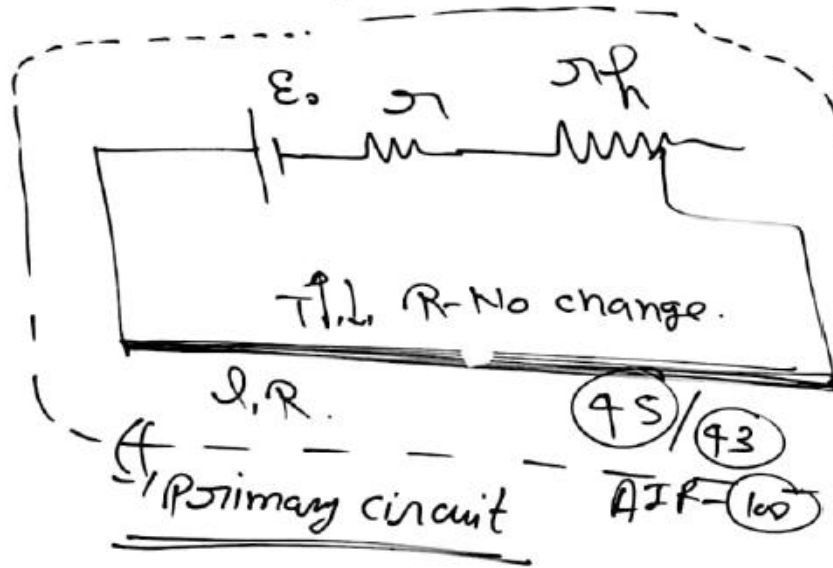 ε₀ r rh
T↑↓, R-No change.
l, R.
45/43
Primary circuit
AIR-100